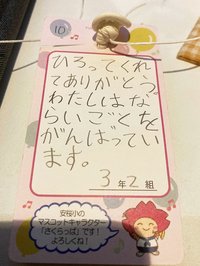 10
ひろってくれ
てありがとう。
わたしはな
らいごとを
がんばってい
ます。
3年2組
安桜小の
マスコットキャラクター
「さくらっぱ」です!
よろしくね!